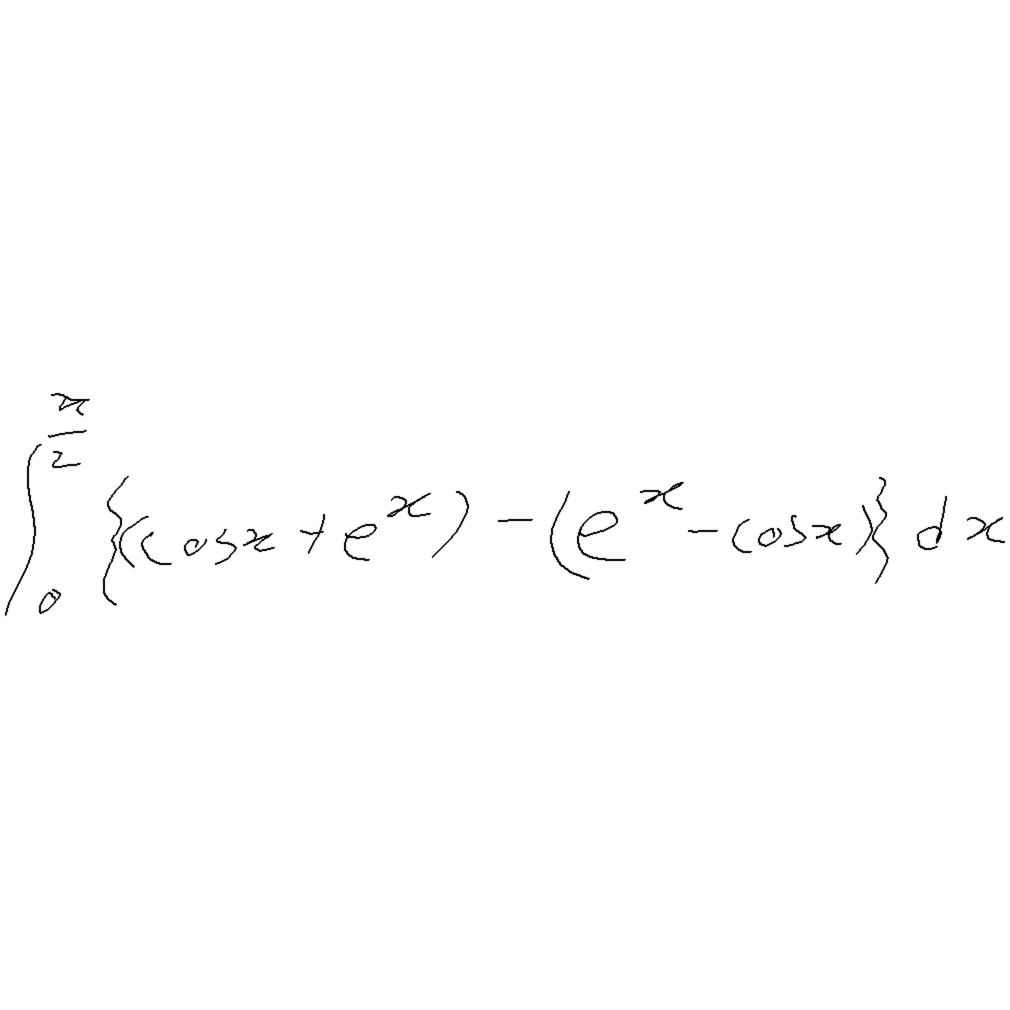 ∫₀^{π/2} {(cosx + e^x) - (e^x - cosx)} dx